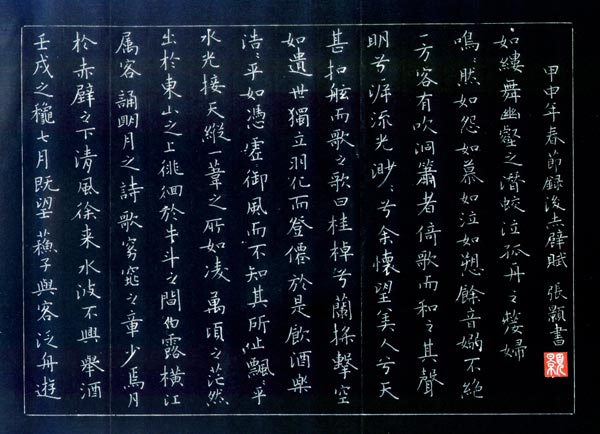 壬戌之穐七月既望蘇子與客泛舟遊
於赤壁之下清風徐来水波不興舉酒
属客誦明月之詩歌窈窕之章少焉月
出於東山之上徘徊於牛斗之間白露橫江
水光接天縱一葦之所如凌萬頃之茫然
浩〻乎如憑虛御風而不知其所止飄〻乎
如遺世獨立羽化而登僊於是飲酒樂
甚扣舷而歌之歌曰桂棹兮蘭槳擊空
明兮泝流光渺〻兮余懷望美人兮天
一方客有吹洞簫者倚歌而和之其聲
嗚〻然如怨如慕如泣如愬餘音嫋不絕
如縷舞幽壑之潛蛟泣孤舟之嫠婦
甲申年春節錄後赤壁賦 張書